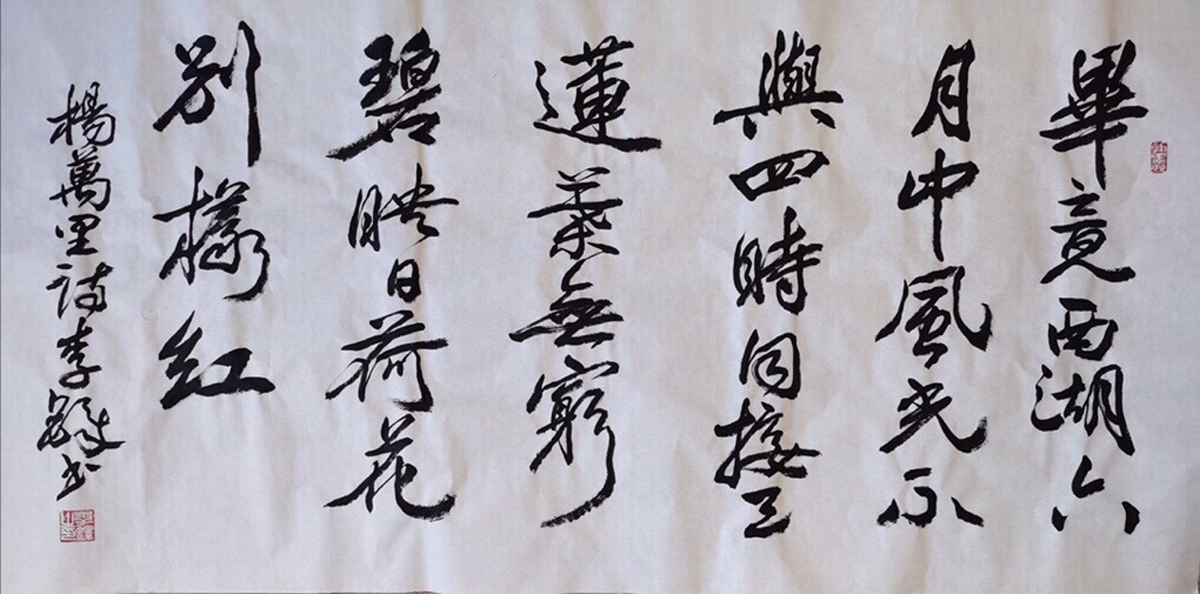 畢竟西湖六
月中風光不
與四時同接天
蓮葉無窮
碧映日荷花
別樣紅
楊萬里詩李書